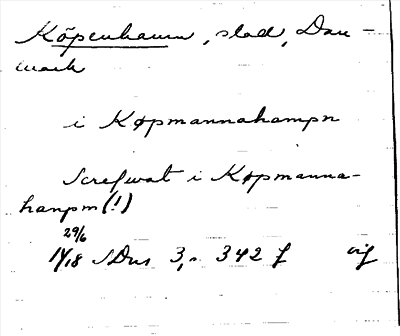 Köpenhamn, stad, Dan-
mark
i Køpmannahampn
Screfwat i Køpmanna-
hanpm (!)
29/6
1418 SDns 3, s 342 f